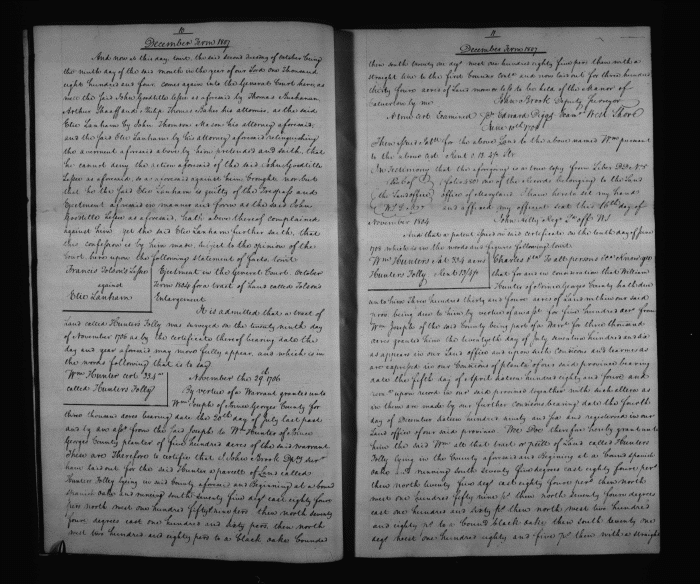 10
December Term 1807
And now at this day, to wit, the said second Tuesday of October being
the ninth day of the said month in the year of our Lord one Thousand
eight hundred and four comes again into the General Court here as
well the said John Gorditto Lessee as aforesaid by Thomas Buchanan
Arthur Shaaff and Philip Thomas Baker his attornies, as the said
Elie Lanham by John Thomson Mason his attorney aforesaid,
and the said Elie Lanham by his attorney aforesaid relinquishing
the averment aforesaid above by him pretended and saith, that
he cannot deny the action aforesaid of the said John Gorditto
Lessee aforesaid, as is aforesaid against him brought nor but
that he the said Elie Lanham is guilty of the Trespass and
Ejectment aforesaid in manner and form as the said John
Gorditto Lessee as aforesaid, hath above thereof complained
against him. yet the said Elie Lanham further saith, that
this confession is by him made, subject to the opinion of the
Court here upon the following statement of facts to wit
Francis Tolson's Lessee
against
Elie Lanham
Ejectment in the General Court, October
Term 1804 for a tract of Land called Tolson's
Enlargement
It is admitted that a tract of
Land called Hunters Folly was surveyed on the twenty ninth day
of November 1706 as by the certificate thereof bearing date the
day and year aforesaid may more fully appear, and which is in
the words following that is to say
Wm Hunter cert. 334 as
called Hunters Folly
November the 29th 1706
By vertue of a Warrant granted unto
Wm Joseph of Prince Georges County for
three thousand acres bearing date the 20th day of July last past
and by an asst from the said Joseph to Wm Hunter of Prince
Georges County planter of five hundred acres of the said warrant
These are Therefore to certifie that I John Brook Dpty Survr
have laid out for the said Hunter a parcell of Land called
Hunters Folly lying in said County aforesaid and Beginning at a bound
Spanish oake and running south seventy five degs east eighty four
pers north west one hundred fifty nine pers then north seventy
four degrees east one hundred and sixty pers then north
west two hundred and eighty pers to a black oake bounded
11
December Term 1807
then south twenty one degs west one hundred eighty five pers then with a
straight line to the first bounded and now laid out for three hundred
thirty four acres of Land more or less to be held of the Manor of
Calverton by me
John Brook Deputy Surveyor
A true cert Examined Edward Digges
June 10th 1708
Then assign Patt for the above Land to the above named Wm pursuant
to the above cert
In Testimony that the foregoing is a true copy from Liber
folio one of the records belonging to the Land
office of Maryland I have hereto set my hand
and affixed my official seal this 16th day of
November 1804
John Kilty Regr
And that a patent issued on said certificate on the tenth day of June
1708 which is in the words and figures following to wit
Wm Hunters Pat 334 acres
Hunters Folly
Charles To all persons Know ye
that for and in consideration that William
Hunter of Prince Georges County hath due
unto him Three hundred thirty and four acres of Land within our said
prov. being due to him by vertue of an asst for five hundred acres from
Wm Joseph of the said County being part of a Warrt for three thousand
acres granted him the twentyeth day of July seventeen hundred and six
as appears in our Land office and upon such condisons and tearmes as
are expressed in our Condisons of plantn of our said province bearing
date the fifth day of April sixteen hundred eighty and four and
upon record in our said province together with such alteration as
in them are made by our further condisons bearing date the fourth
day of December sixteen hundred ninety and six and registered in our
Land office of our said province. Wee Doe therefore hereby grant unto
him the said Wm all that tract or parcell of Land called Hunters
Folly lying in the County aforesaid and Beginning at a bound spanish
oake and running South Seventy five degrees east eighty four pers
then north twenty five degs east eighty four pers then north
west one hundred fifty nine ps then north seventy four degrees
east one hundred and sixty ps then north west two hundred
and eighty ps to a bound black oake, then south twenty one
degs west one hundred eighty and five ps then with a straight